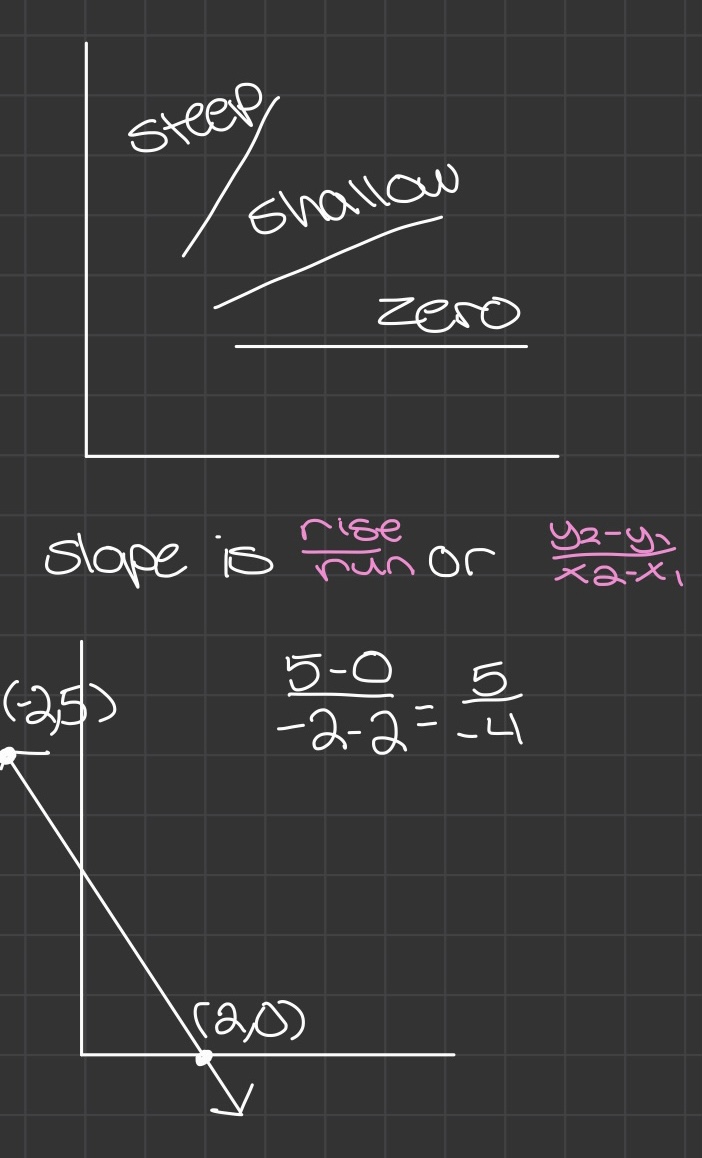 steep
shallow
zero
slope is rise/run or y2-y1/x2-x1
(-2,5)
5-0/-2-2 = 5/-4
(2,0)